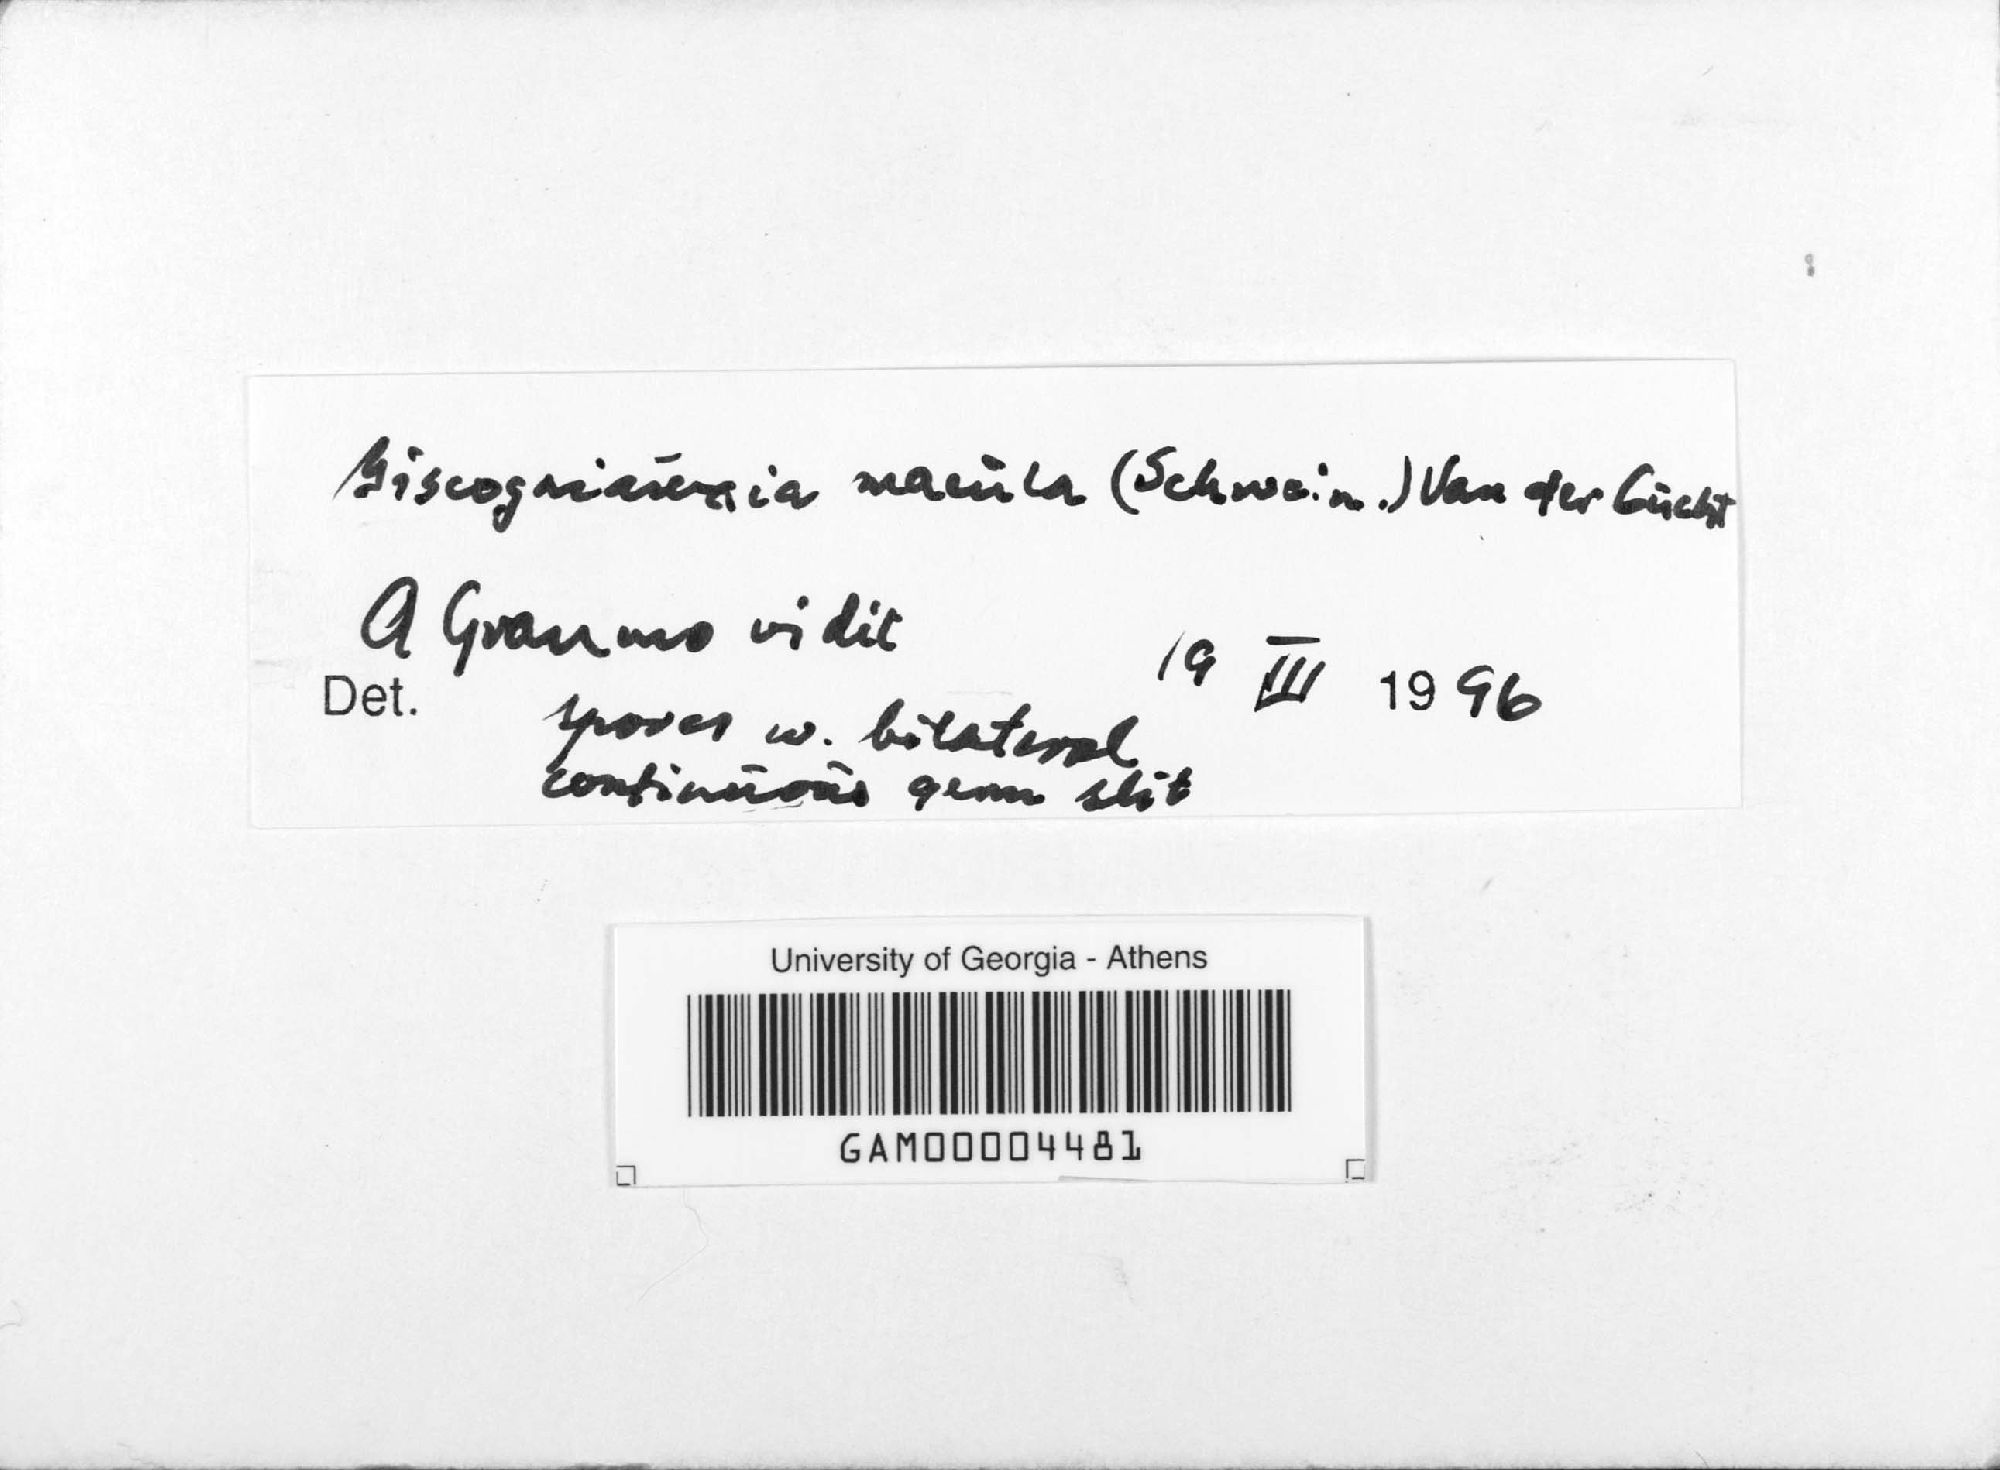 Biscogniauxia macula (Schwein.) Van der Gucht
A Granmo vidit
19 III 1996
Det.
spores w. bilateral
continuous germ slit
University of Georgia - Athens
GAM00004481